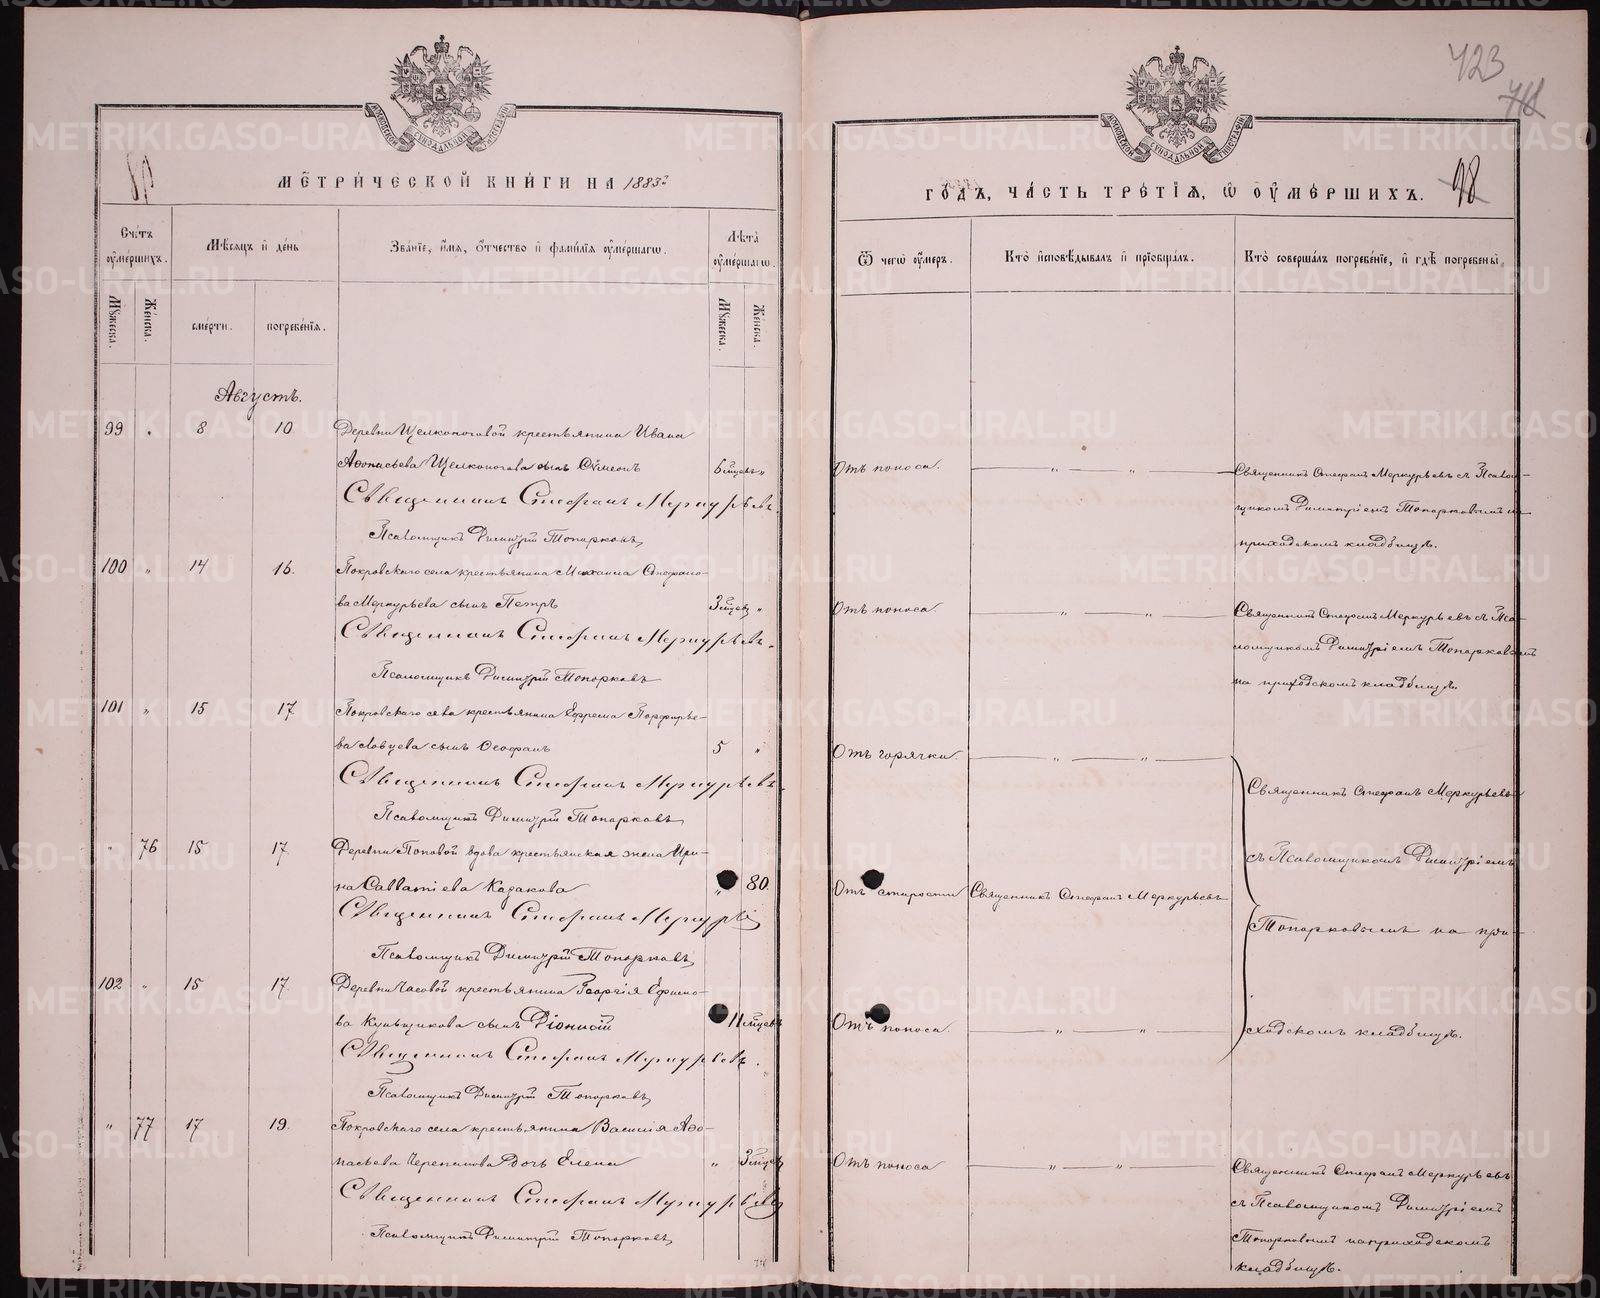 423
МОСКОВСКОЙ СѴНОДАЛЬНОЙ ТИПОГРАФІИ
МОСКОВСКОЙ СѴНОДАЛЬНОЙ ТИПОГРАФІИ
МЕТРИЧЕСКОЙ КНИГИ НА 1883й
ГОДЪ, ЧАСТЬ ТРЕТІЯ, Ѡ ОУМЕРШИХЪ. 98
Счетъ оумершихъ.
Мѣсяцъ и день
Званіе, имя, отчество и фамилія оумершагѡ.
Лѣта оумершагѡ.
Ѿ чегѡ оумеръ.
Кто исповѣдывалъ и пріобщалъ.
Кто совершалъ погребеніе, и гдѣ погребены.
Мꙋжеска.
Женска.
смерти.
погребенія.
Мꙋжеска.
Женска.
Августъ.
99 „ 8 10 Деревни Щелконоговой крестьянина Ивана
Аѳонасьева Щелконогова сынъ Сѵмеонъ 6 мцевъ „ Отъ поноса. — „ — „ — Священникъ Стефанъ Меркурьевъ съ Псалом-
Священникъ Стефанъ Меркурьевъ.
щикомъ Димитріемъ Топорковымъ на
Псаломщикъ Димитрій Топорковъ
приходскомъ кладбищѣ.
100 „ 14 16. Покровскаго села крестьянина Михаила Стефано-
ва Меркурьева сынъ Петръ 3 мцевъ „ Отъ поноса. — „ — „ — Священникъ Стефанъ Меркурьевъ съ Пса-
Священникъ Стефанъ Меркурьевъ.
ломщикомъ Димитріемъ Топорковымъ
Псаломщикъ Димитрій Топорковъ
на приходскомъ кладбищѣ.
101 „ 15 17 Покровскаго села крестьянина Ефрема Порфирье-
ва Ловцева сынъ Ѳеофанъ 5 „ Отъ горячки. — „ — „ —
Священникъ Стефанъ Меркурьевъ
Священникъ Стефанъ Меркурьевъ
Псаломщикъ Димитрій Топорковъ
„ 76 15 17. Деревни Поповой вдова крестьянская жена Ири-
съ Псаломщикомъ Димитріемъ
на Савватіева Казакова „ 80. Отъ старости Священникъ Стефанъ Меркурьевъ
Священникъ Стефанъ Меркурьевъ
Топорковымъ на при-
Псаломщикъ Димитрій Топорковъ
102 „ 15 17. Деревни Часовой крестьянина Георгія Ефимо-
ва Куньщикова сынъ Діонисій 11 мцевъ Отъ поноса. — „ — „ — ходскомъ кладбищѣ.
Священникъ Стефанъ Меркурьевъ.
Псаломщикъ Димитрій Топорковъ
„ 77 17 19. Покровскаго села крестьянина Василія Аѳо-
насьева Черепанова дочь Елена „ 3 мцевъ Отъ поноса — „ — „ — Священникъ Стефанъ Меркурьевъ
Священникъ Стефанъ Меркурьевъ
съ Псаломщикомъ Димитріемъ
Псаломщикъ Димитрій Топорковъ
Топорковымъ на приходскомъ
кладбищѣ.
METRIKI.GASO-URAL.RU